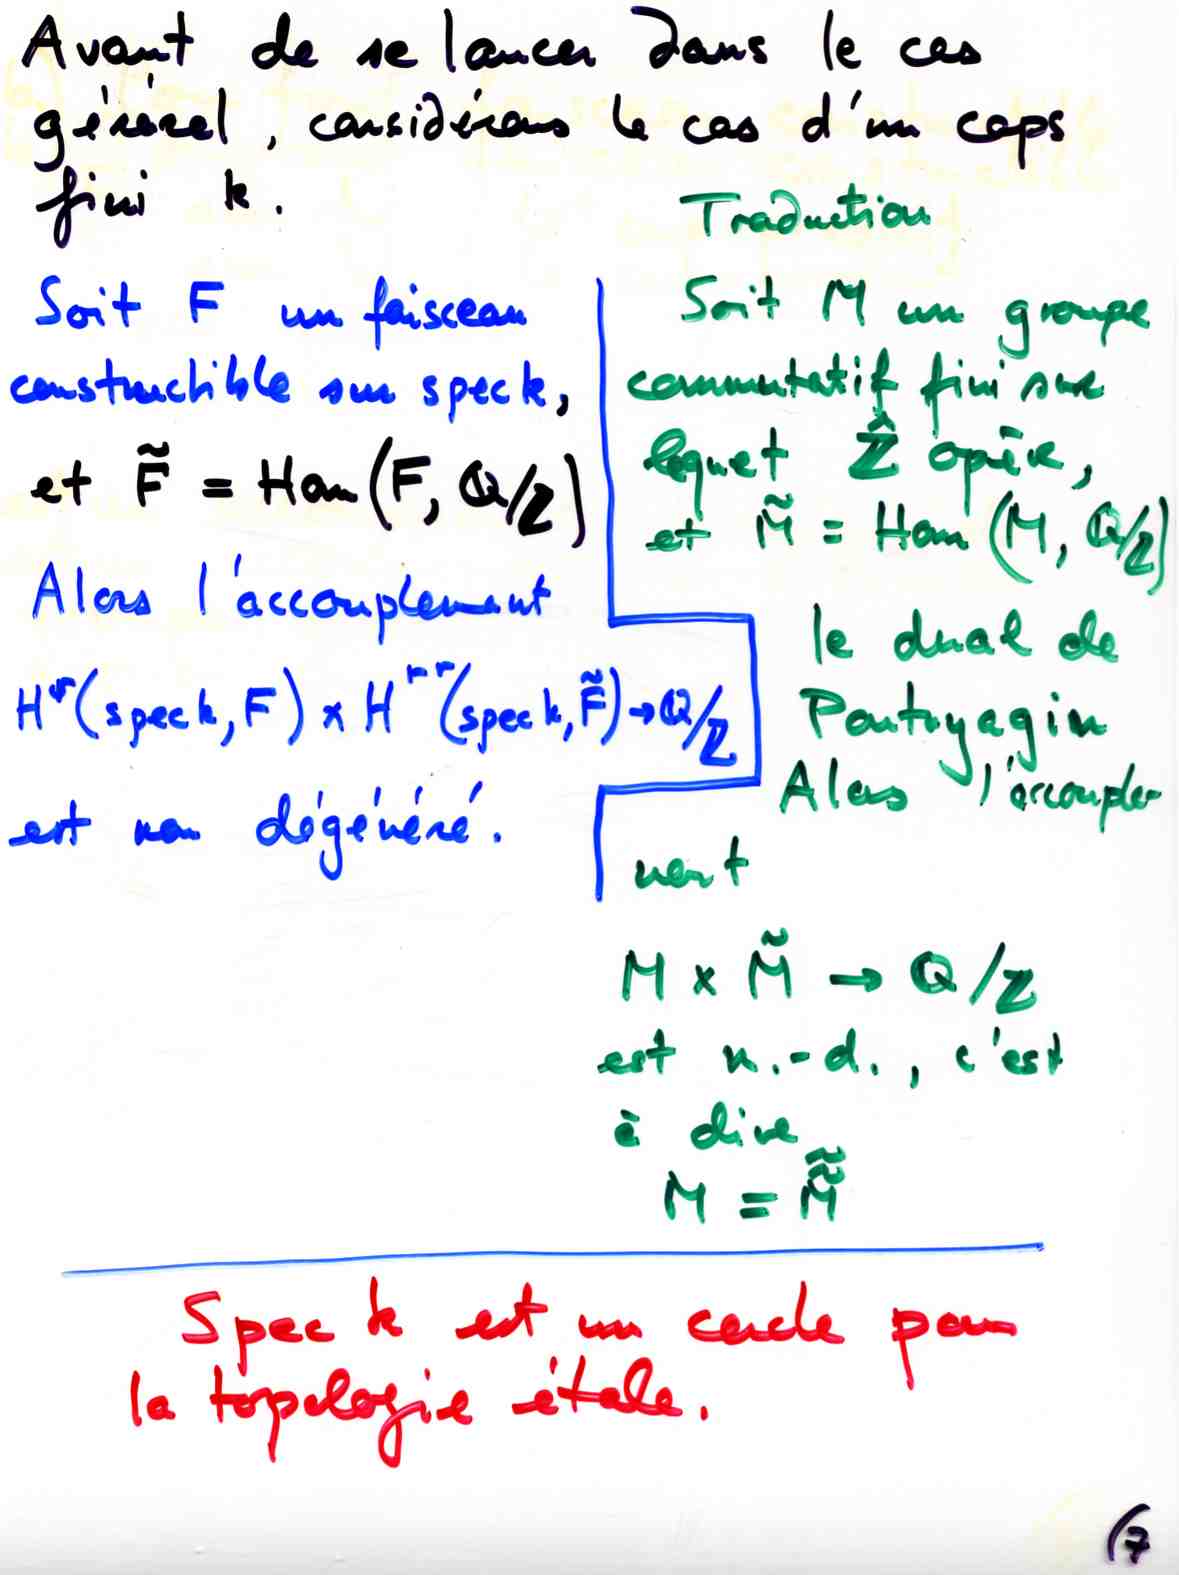 Avant de se lancer dans le cas
général, considérons le cas d'un corps
fini k.
Soit F un faisceau
constructible sur spec k,
et F̃ = Hom(F, Q/Z)
Alors l'accouplement
H^r(spec k, F) × H^{1-r}(spec k, F̃) → Q/Z
est non dégénéré.
Traduction
Soit M un groupe
commutatif fini sur
lequel Ẑ opère,
et M̃ = Hom(M, Q/Z)
le dual de
Pontryagin
Alors l'accouple-
ment
M × M̃ → Q/Z
est n.-d., c'est
à dire
M = M̃̃
Spec k est un cercle pour
la topologie étale.
(7